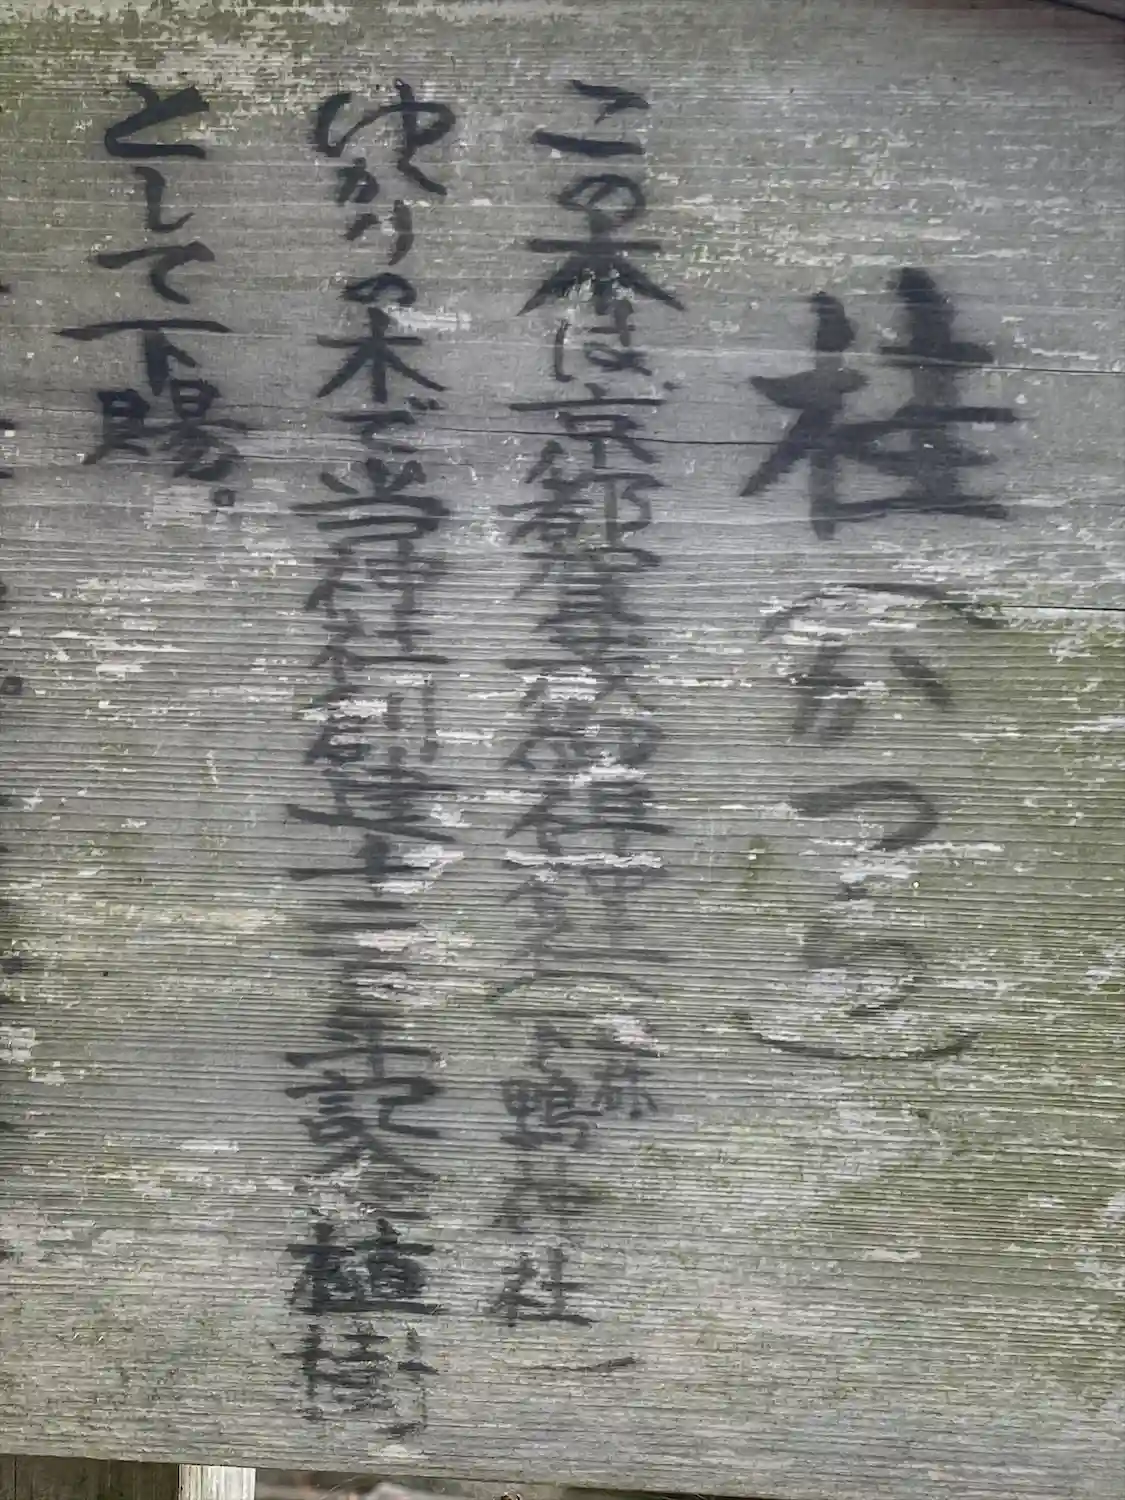 桂（かつら）
この木は京都賀茂御祖神社（下鴨神社）
ゆかりの木で当神社創建千二百年記念植樹
として下賜。